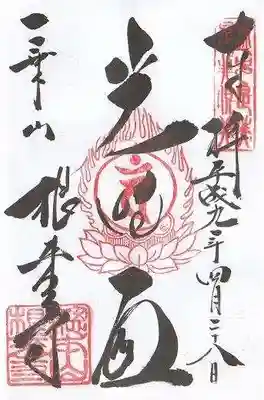 奉拝 平成九年四月二十八日
光明殿
一乗山 根来寺